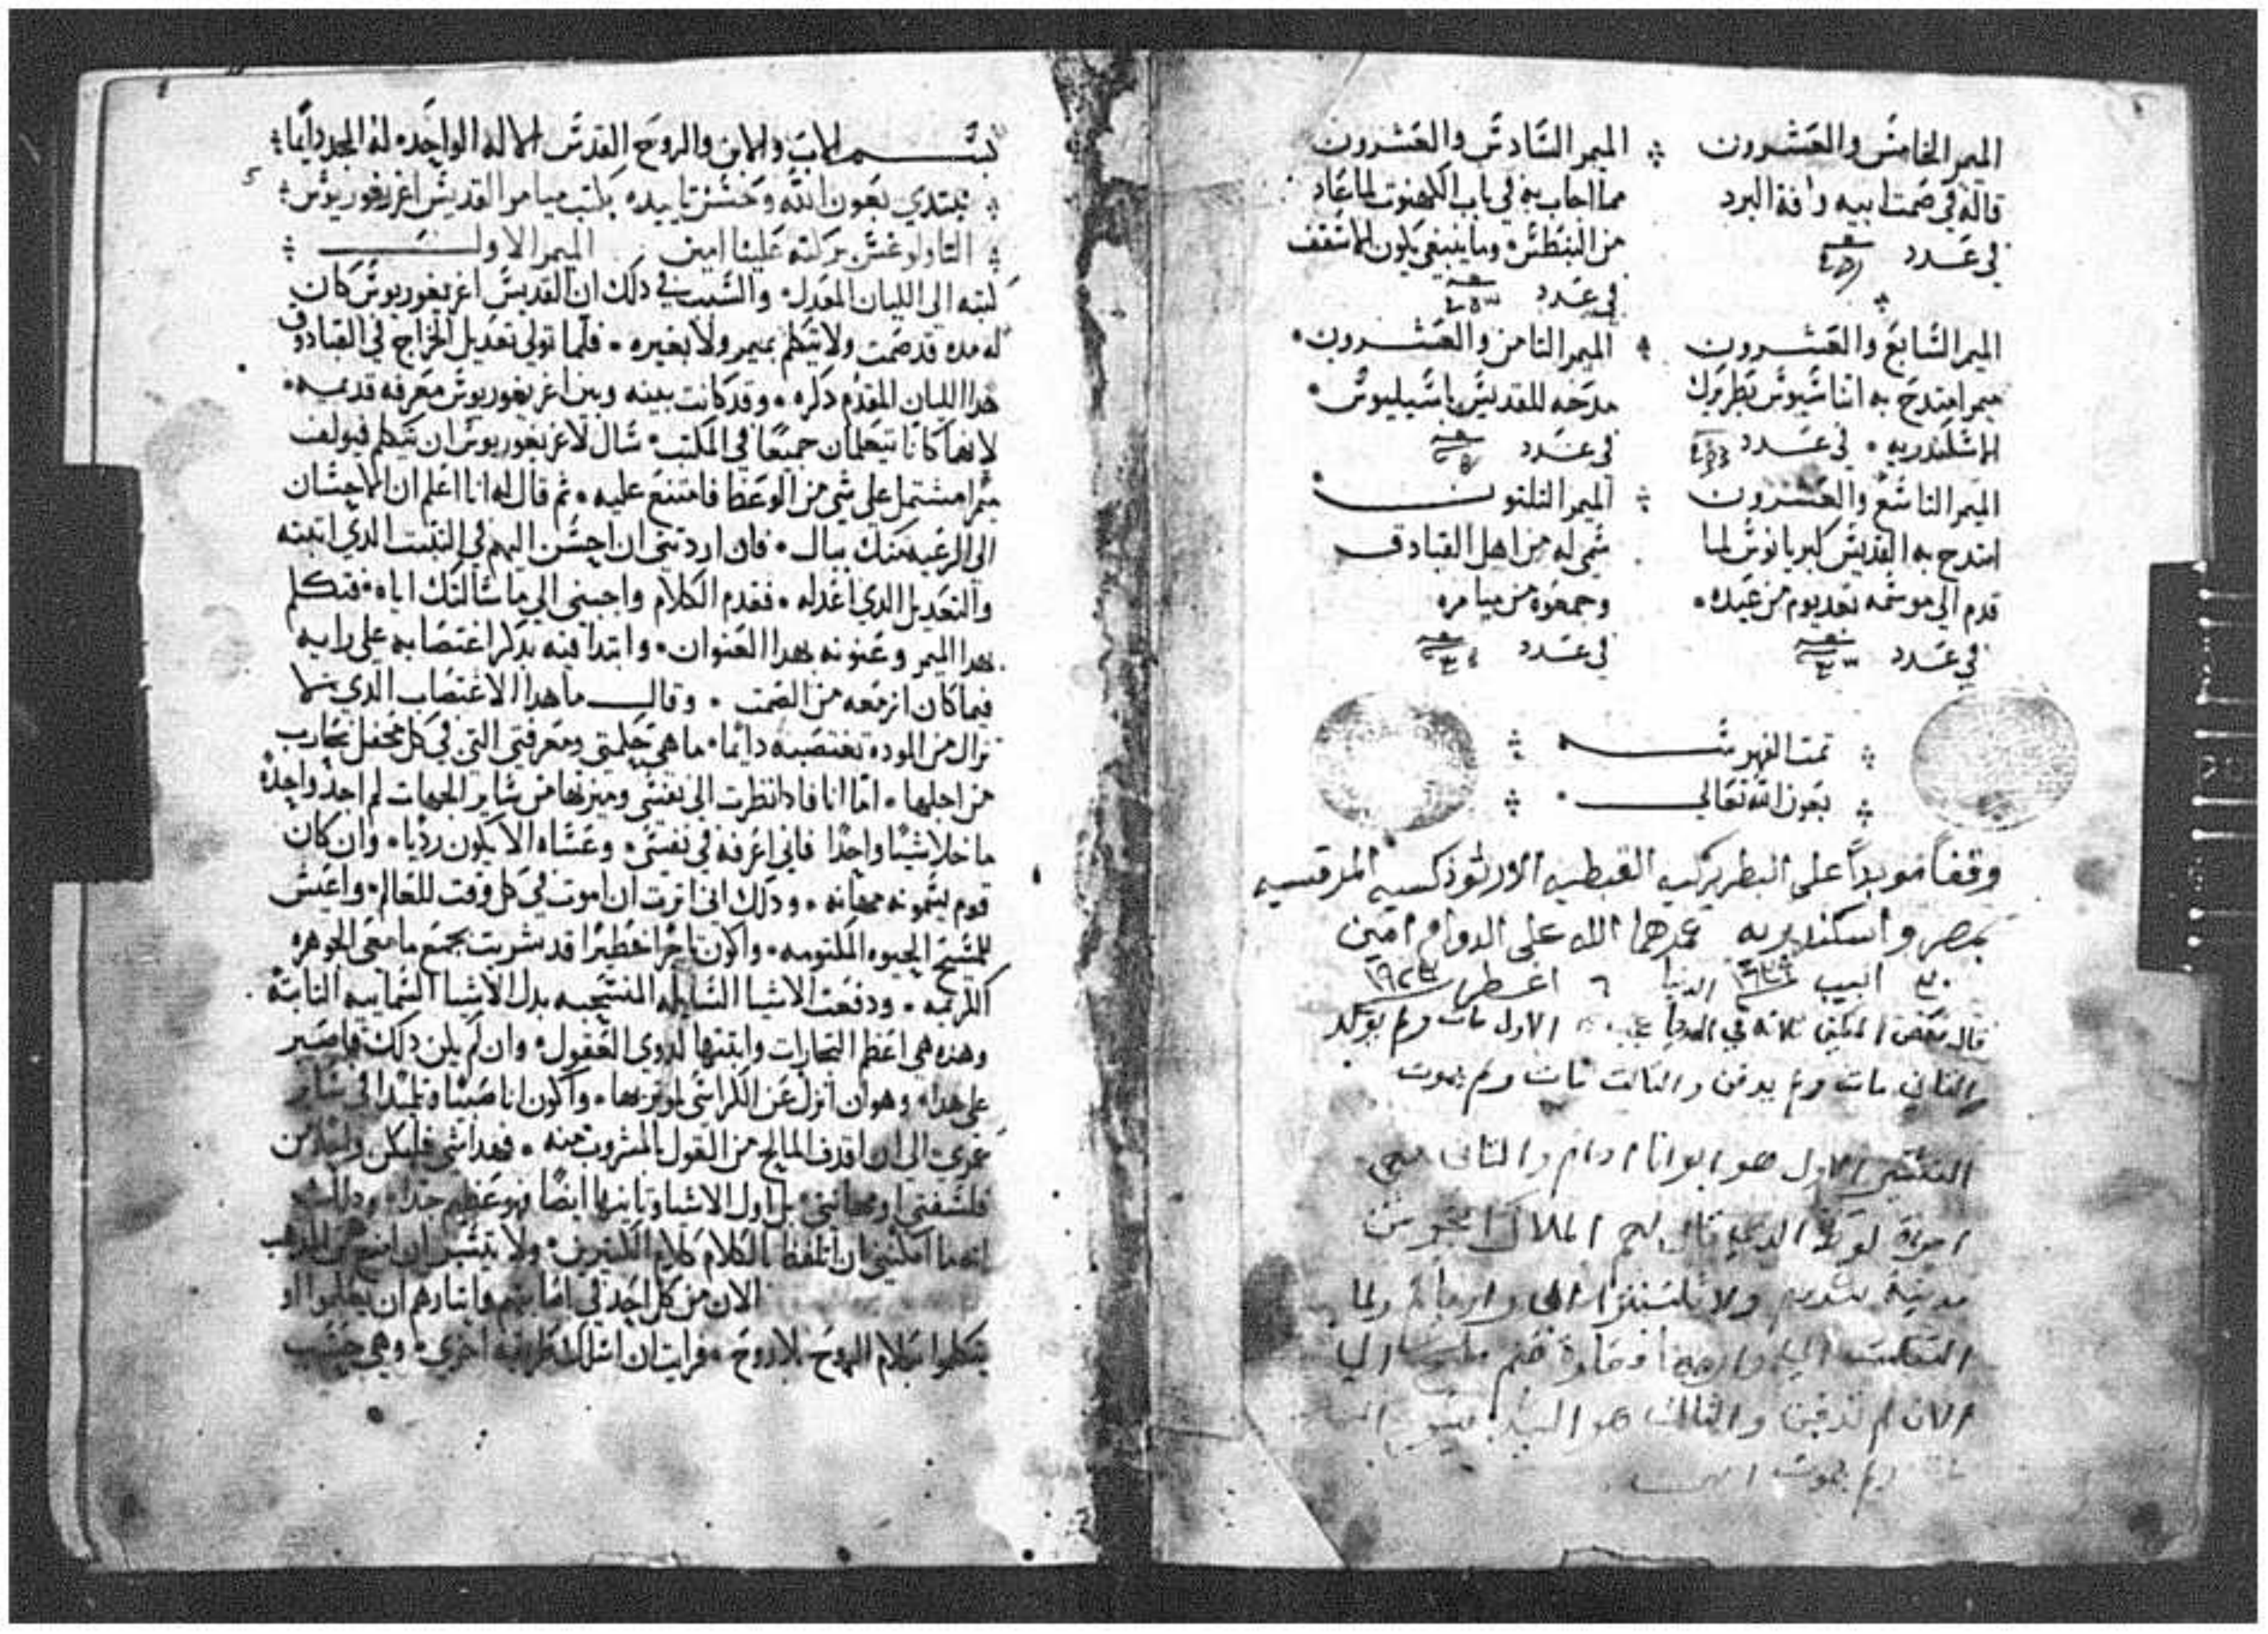 الميمر الخامس والعشرون
قاله في صمت ابيه وافة البرد
في عدد
الميمر السادس والعشرون
مما اجاب به في باب الكهنوت لما عاد
من البنطس وما ينبغي يكون الاسقف
في عدد
الميمر السابع والعشرون
ميمر امتدح به اثناسيوس بطريرك
الاسكندريه في عدد
الميمر الثامن والعشرون
مدحه للقديس باسيليوس
في عدد
الميمر التاسع والعشرون
امتدح به القديس كبريانوس لما
قدم الي موسمه بعد يوم من عيده
في عدد
الميمر الثلثون
شي له من اهل القبادق
وجمعوه من ميامره
في عدد
تمت الفهرسه
بعون الله تعالي
وقفاً موبداً على البطريركيه القبطيه الارثوذكسيه المرقسيه
بمصر واسكندريه عمرهما الله على الدوام امين
قال بعض ثلاثه في الدنيا الاول مات ولم يولد
الثاني مات ولم يدفن والثالث مات ولم يموت
التفسير الاول هو ابونا ادام والثاني هي
امراة لوط الذي قال لهم الملاك اخرجو من
مدينة سدوم ولا تلتفتوا الى ورايكم ولما
التفتت الي
الان لم تدفن والثالث هو السيد
ولم يموت
بسم الاب والابن والروح القدس الاله الواحد له المجد دايما
نبتدي بعون الله وحسن تاييده بكتب ميامر القديس اغريغوريوس
التاولوغس بركته علينا امين الميمر الاول
كتبه الى الليان المعدل والسبب في ذلك ان القديس اغريغوريوس كان
له مده قد صمت ولا يتكلم بميمر ولا بغيره فلما تولي تعديل الخراج في القبادوق
هدا الليان المقدم ذكره وقد كانت بينه وبين اغريغوريوس معرفه قديمه
لانهما كانا يتعلمان جميعا في المكتب سال لاغريغوريوس ان يتكلم فيولف
ميمرا مشتمل على شي من الوعظ فامتنع عليه ثم قال له انا اعلم ان الاحسان
الى الرعيه منك ببال فان اردتني ان احسن اليهم في التبت الدي اتبته
والتعديل الدي اعدله فقدم الكلام واجبني الي ما سالتك اياه فتكلم
بهدا الميمر وعنونه بهدا العنوان وابتدا فيه بدكر اغتصابه على رايه
فيما كان ازمعه من الصمت وقال ما هدا الاغتصاب الدي لا
تزال من الموده تغتصبه دايما ما هي حكمتي ومعرفتي التي في كل محفل تحارب
من اجلها اما انا فادا نظرت الي نفسي وميزتها من ساير الجهات لم اجد واحده
ما خلا شيا واحدا فاني اعرفه في نفسي وعساه الا يكون رديا وان كان
قوم يسمونه مهانه ودلك اني اثرت ان اموت في كل وقت للعالم واعيش
للمسيح الحيوه المكتومه واكون تاجرا خطيرا قد شريت بجميع ما معي الجوهره
الكريمه ودفعت الاشيا السايله المنسحبه بدل الاشيا السماييه الثابته
وهذه هي اعظم التجارات واتقنها لدوي العقول وان لم يكن دلك فاصير
على هدا وهو ان انزل عن الكراسي لموثريها واكون انا صبيا وتلميدا في ساير
عمري الي ان اقدف المالح من القول بالمشروب منه فهدا شي فليكن واحد من
فلسفتي او مهانتي بل اول الاشيا وثانيها ايضا فهو عظيم جدا ودلك
انه ما امكنني ان اتلفظ بالكلام كلام الكثيرين ولا يتيسر ان
الان من كل احد في وايثارهم ان يتعلموا او
يتكلموا بكلام الروح بلا روح فرايت ان اسلك طريقه اخري وهي حسب